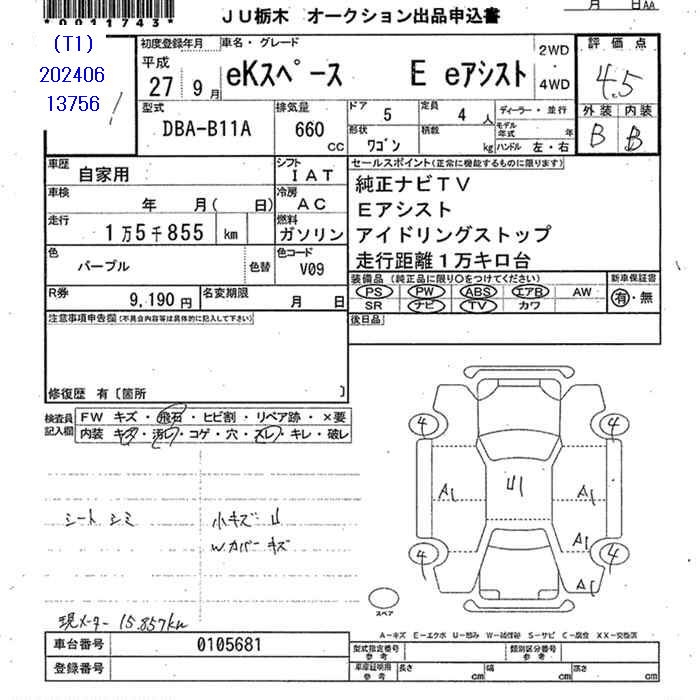 *0011743*
月 日AA
JU栃木 オークション出品申込書
(T1)
202406
13756
初度登録年月 車名・グレード 評価点
平成 27 9月 eKスペース E eアシスト 2WD・4WD 4.5
型式 排気量 ドア 定員 ディーラー・並行 外装 内装
DBA-B11A 660 CC 5 4 人 B B
形状 積載 モデル年式 年
ワゴン kg ハンドル 左・右
車歴 自家用 シフト IAT セールスポイント(正常に機能するものに限ります)
車検 年 月( 日) 冷房 AC
純正ナビTV
Eアシスト
走行 1万5千855 km 燃料 ガソリン
アイドリングストップ
走行距離1万キロ台
色 パープル 色替 色コード V09
装備品(純正品に限り〇をつけてください) 新車保証書
PS PW ABS エアB AW 有・無
SR ナビ TV カワ
R券 9,190円 名変期限 月 日
注意事項申告欄(不具合内容等は具体的に記入して下さい) 後日品
修復歴 有〔箇所 〕
検査員記入欄 FW キズ・飛石・ヒビ割・リペア跡・×要
内装 キズ・汚レ・コゲ・穴・スレ・キレ・破レ
4 4
A1 A1
A1
4 4
A1
シート シミ 小キズ
Wカバー キズ
スペア
現メーター 15.857km
A-キズ E-エクボ U-凹み W-補修跡 S-サビ C-腐食 XX-交換済
車台番号 0105681 型式指定番号 参考 類別区分番号 参考
登録番号 車庫証明用 参考 長さ cm 幅 cm 高さ cm